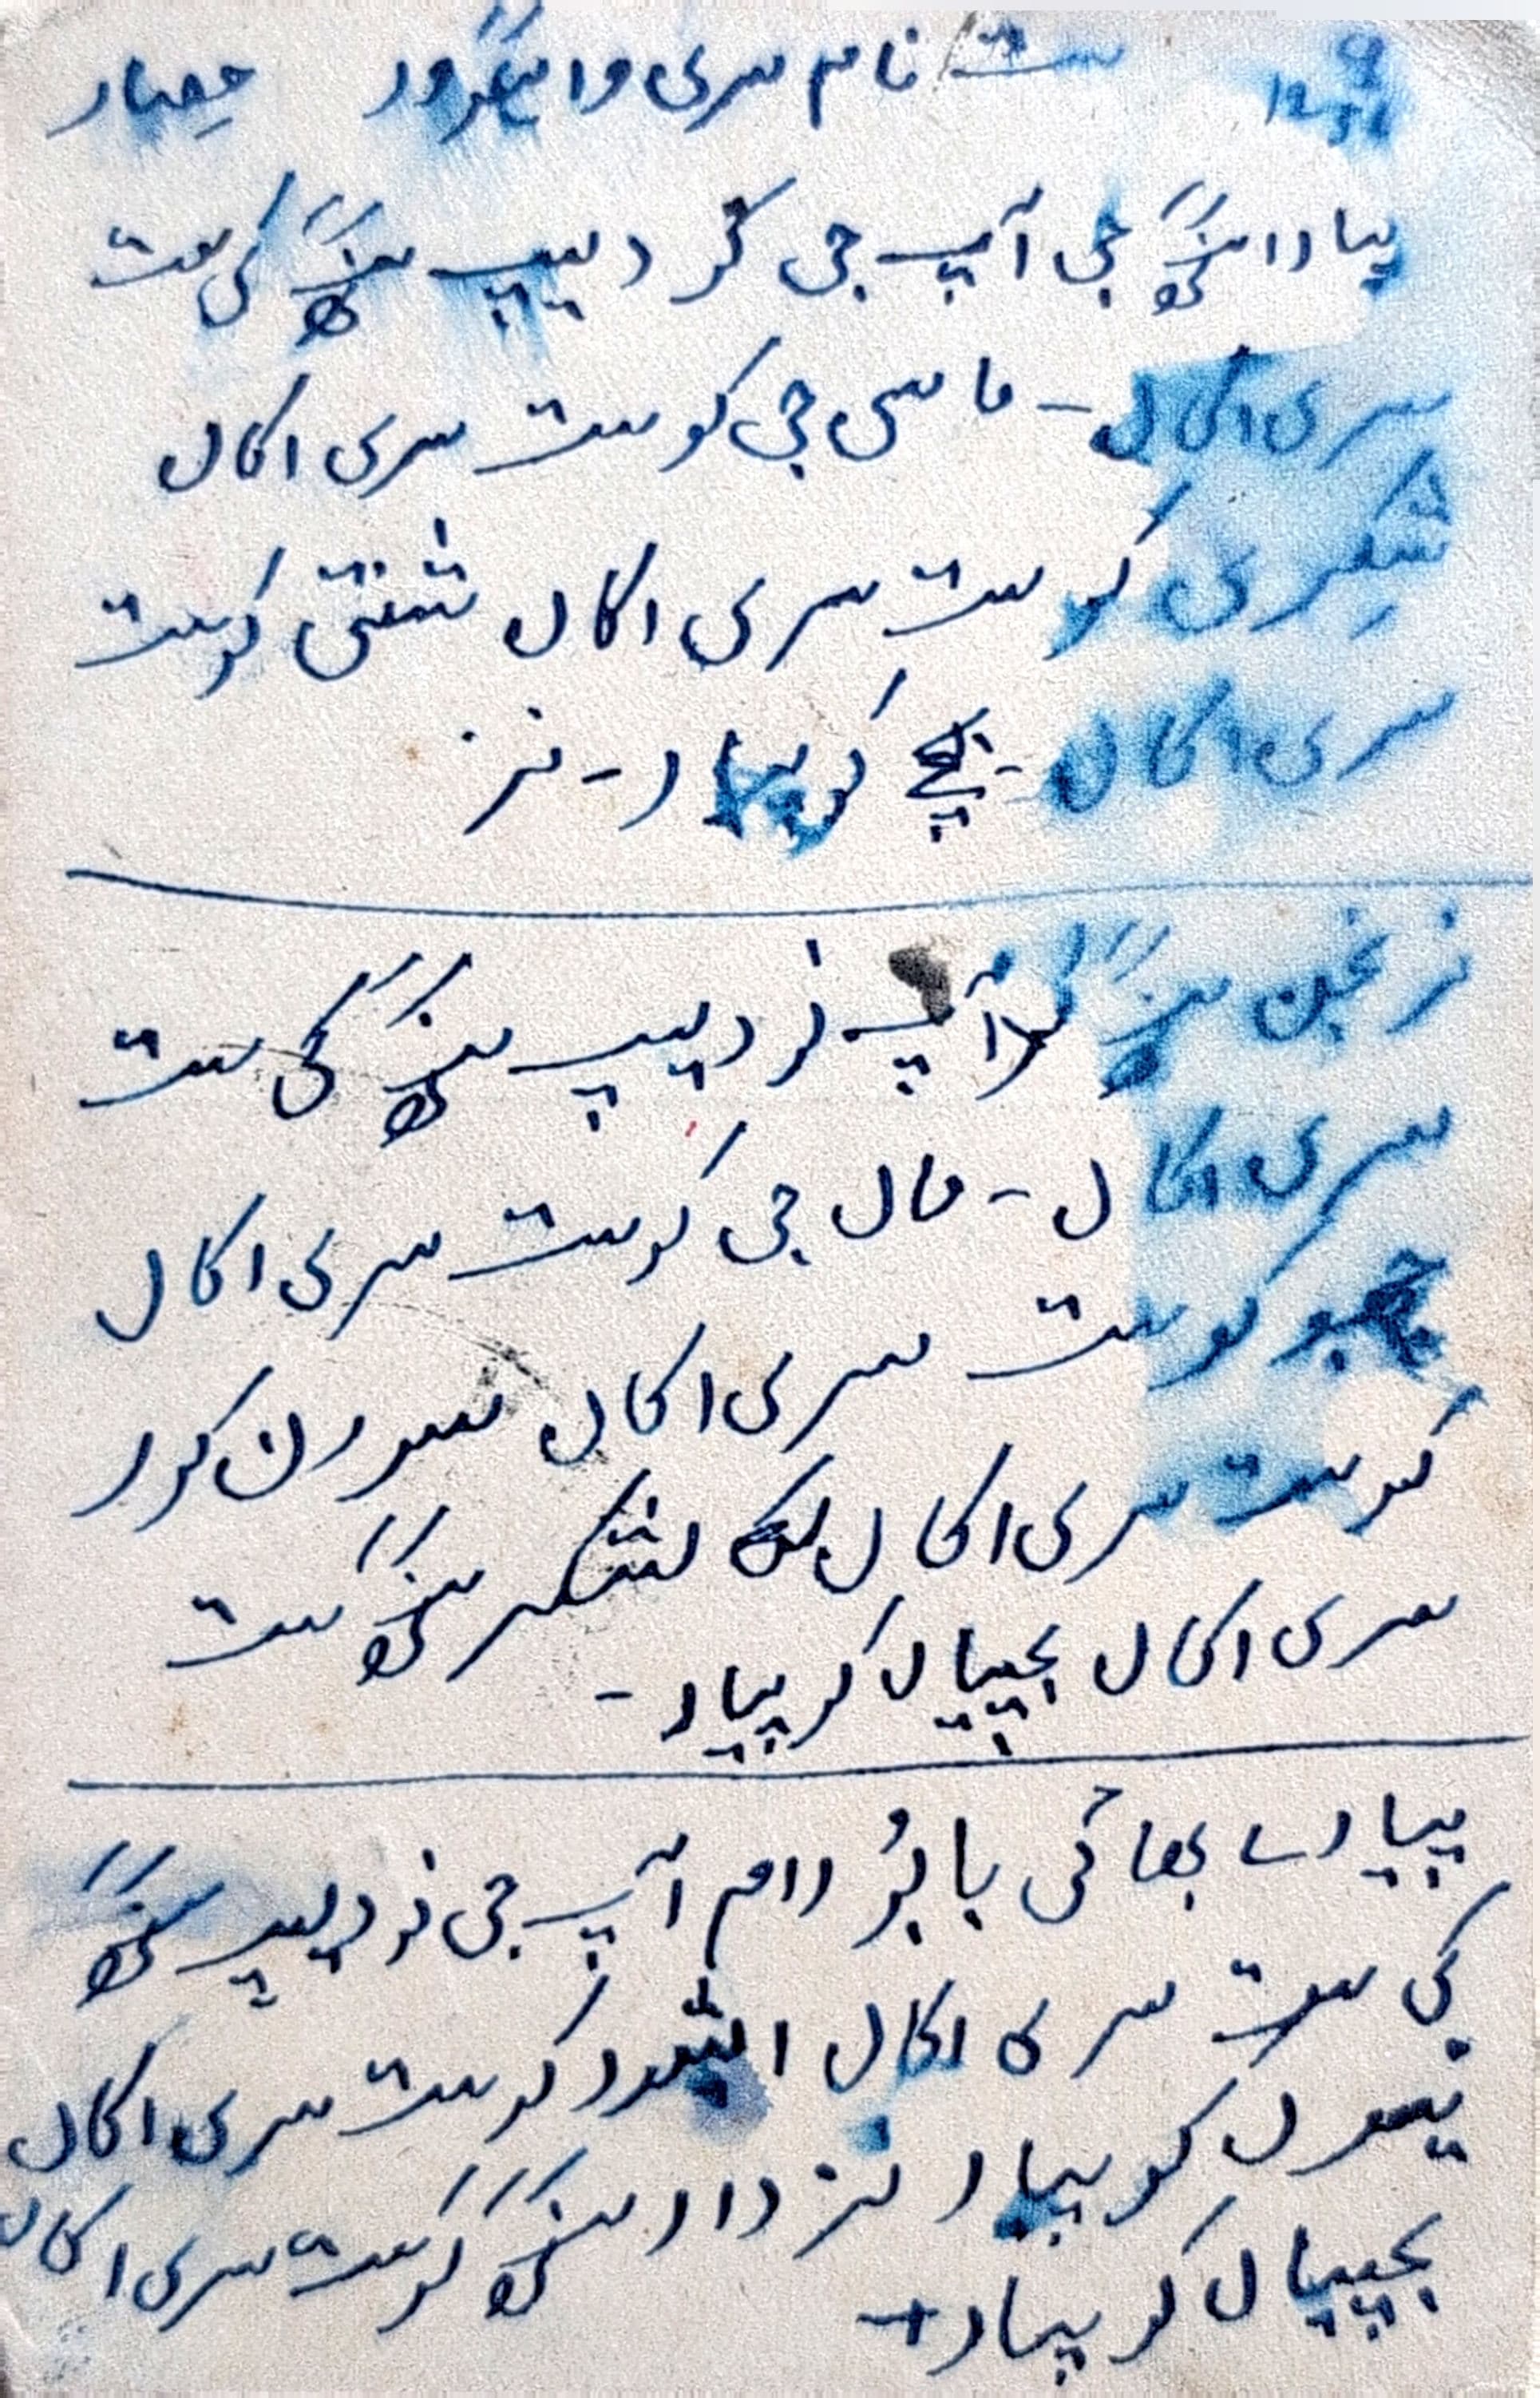 ست نام سری واہگورو حصار
پیارا سنگھ جی آپ جی کو دیپ سنگھ کی ست
سری اکال - ماسی جی کو ست سری اکال
کو ست سری اکال شنتی کو ست
سری اکال - بچے کو پیار - نز
نرنجن سنگھ آپ کو دیپ سنگھ کی ست
سری اکال - ماں جی کو ست سری اکال
کو ست سری اکال سورن کور
کو ست سری اکال لشکر سنگھ ست
سری اکال بچیاں کو پیار -
پیارے بھائی بابُو رام آپ جی کو دیپ سنگھ
کی ست سری اکال کو ست سری اکال
کو پیار نز دارا سنگھ کو ست سری اکال
بچیاں کو پیار +